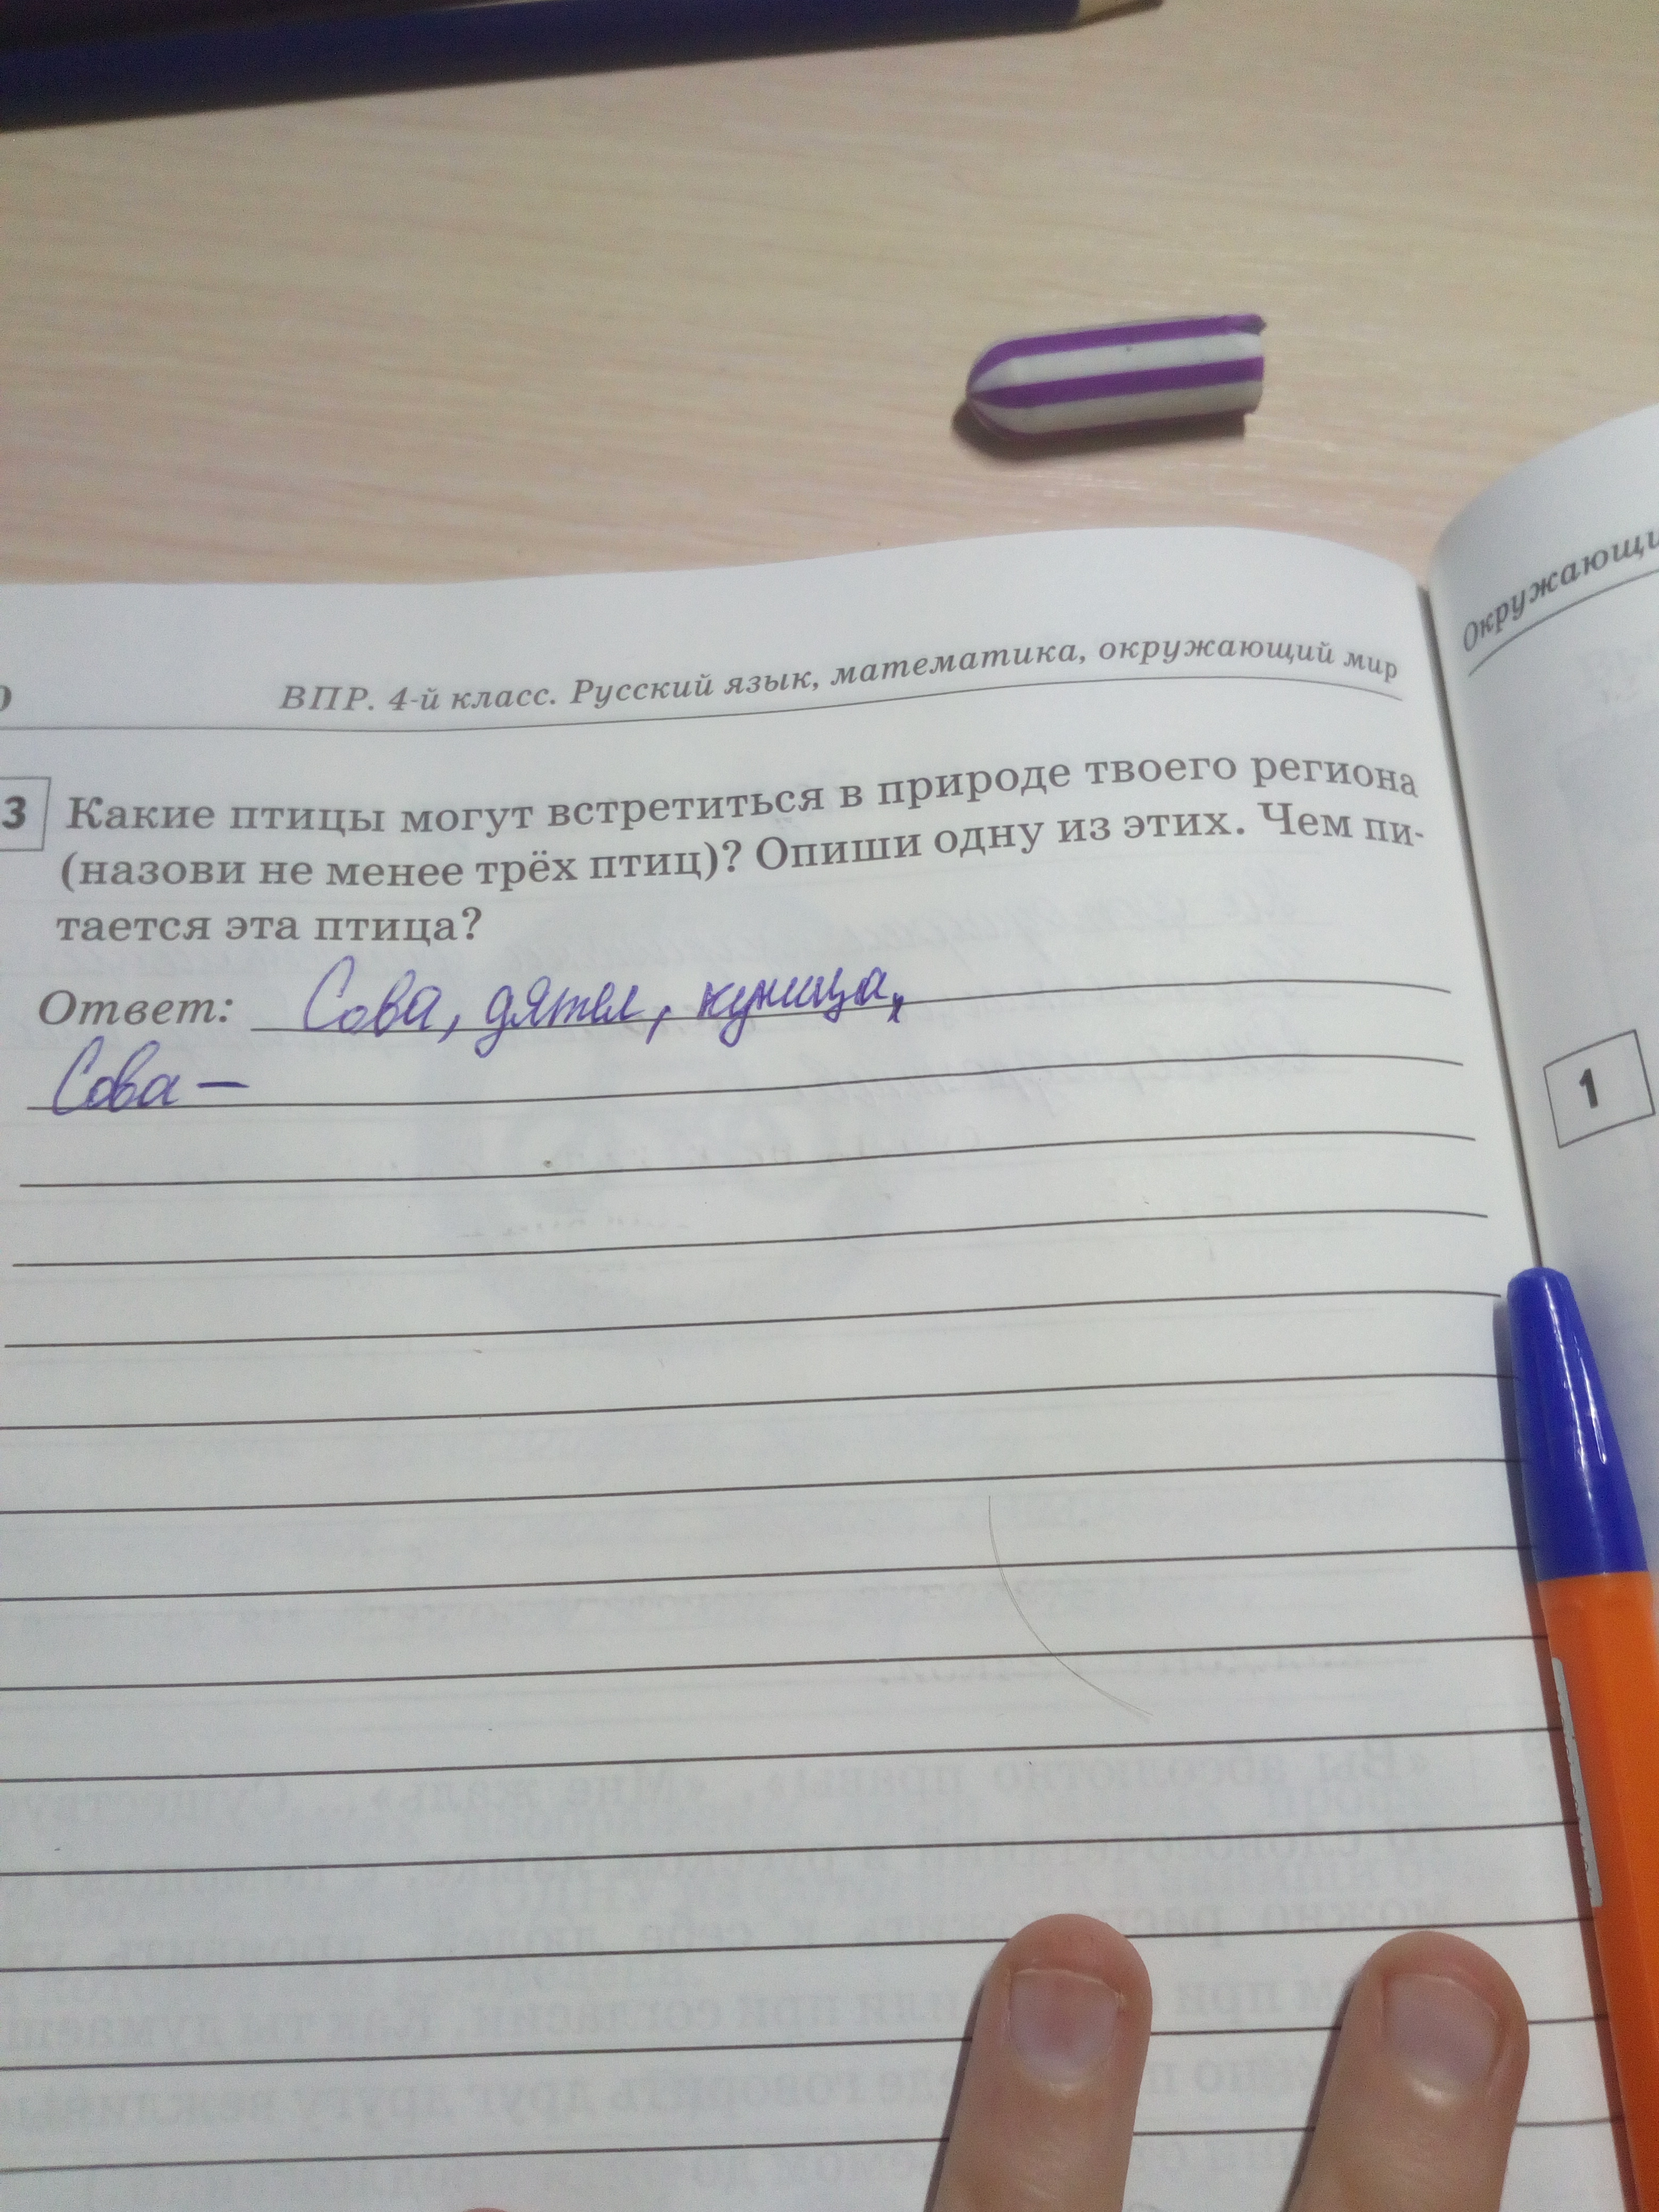 ВПР. 4-й класс. Русский язык, математика, окружающий мир
3 Какие птицы могут встретиться в природе твоего региона
(назови не менее трёх птиц)? Опиши одну из этих. Чем пи-
тается эта птица?
Ответ: Сова, дятел, куница,
Сова –
Окружающи
1